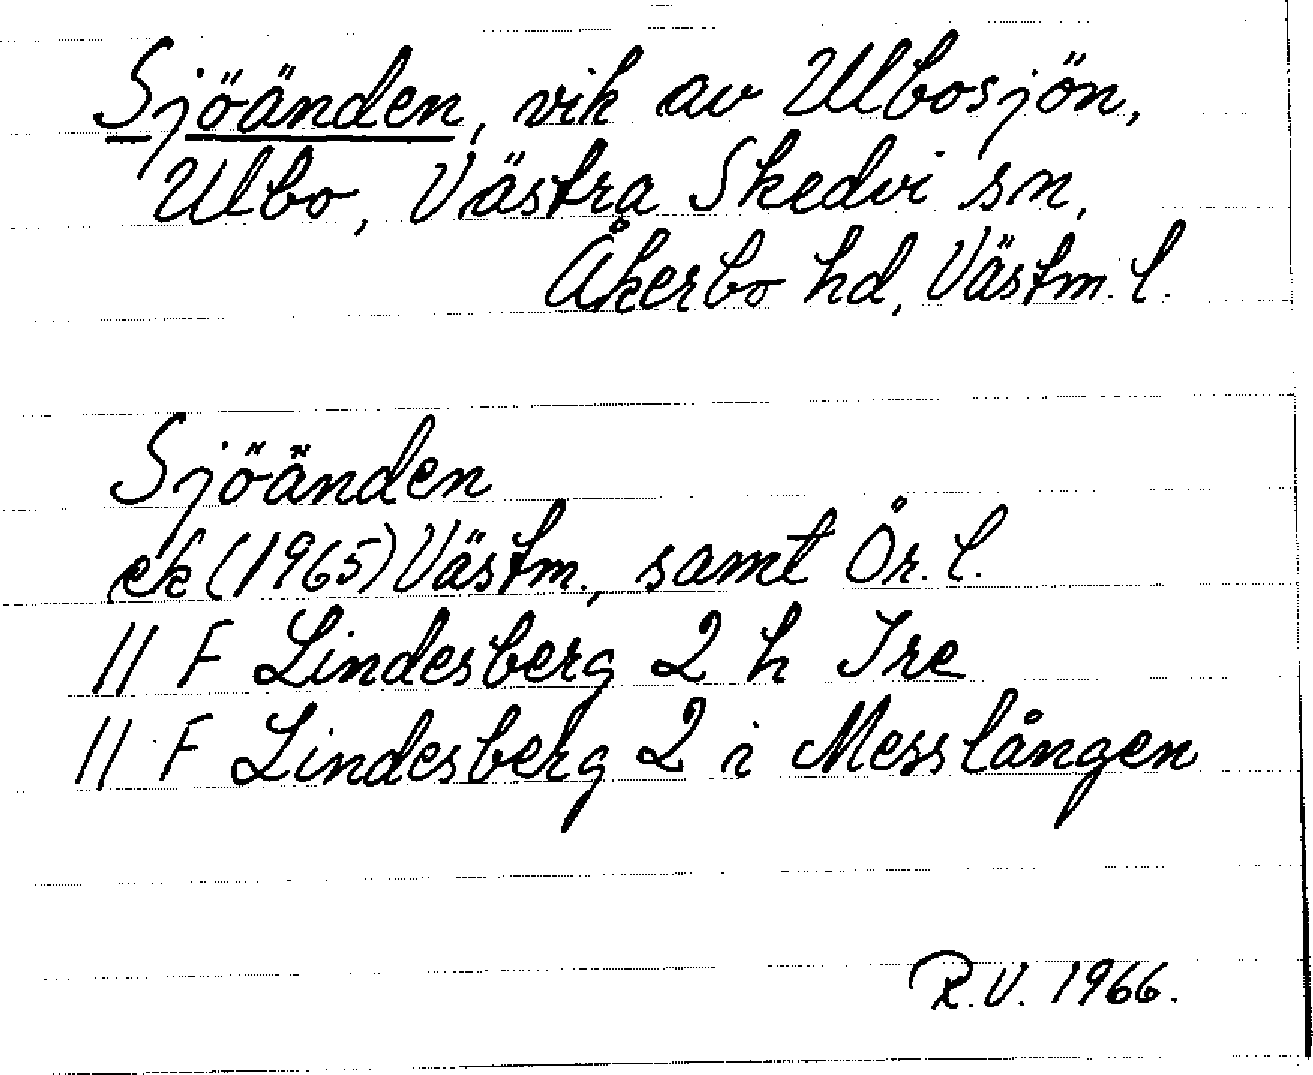 Sjöänden, vik av Ulbosjön,
Ulbo, Västra Skedvi sn,
Åkerbo hd, Västm. l.
Sjöänden
ek (1965) Västm., samt Ör. l.
11 F Lindesberg 2 h Ire
11 F Lindesberg 2 i Messlången
R.V. 1966.